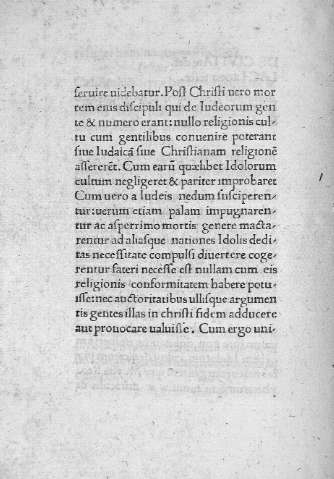 seruire uidebatur. Post Christi uero mor
tem eius discipuli qui de Iudeorum gen
te & numero erant: nullo religionis cul-
tu cum gentilibus conuenire poterant
siue Iudaicã siue Christianam religionẽ
assererẽt. Cum earũ quælibet Idolorum
cultum negligeret & pariter improbaret
Cum uero a Iudeis nedum susciperen-
tur: uerum etiam palam impugnaren-
tur ac asperrimo mortis genere macta-
rentur ad aliasque nationes Idolis dedi-
tas necessitate compulsi diuertere coge-
rentur fateri necesse est nullam cum eis
religionis conformitatem habere potu-
isse: nec auctoritatibus ullisque argumen
tis gentes illas in christi fidem adducere
aut prouocare ualuisse. Cum ergo uni-